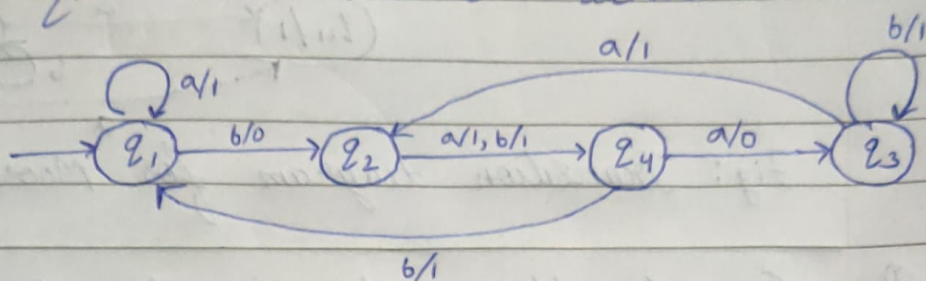 a/1 b/1
a/1
q₁ b/0 q₂ a/1, b/1 q₄ a/0 q₃
b/1